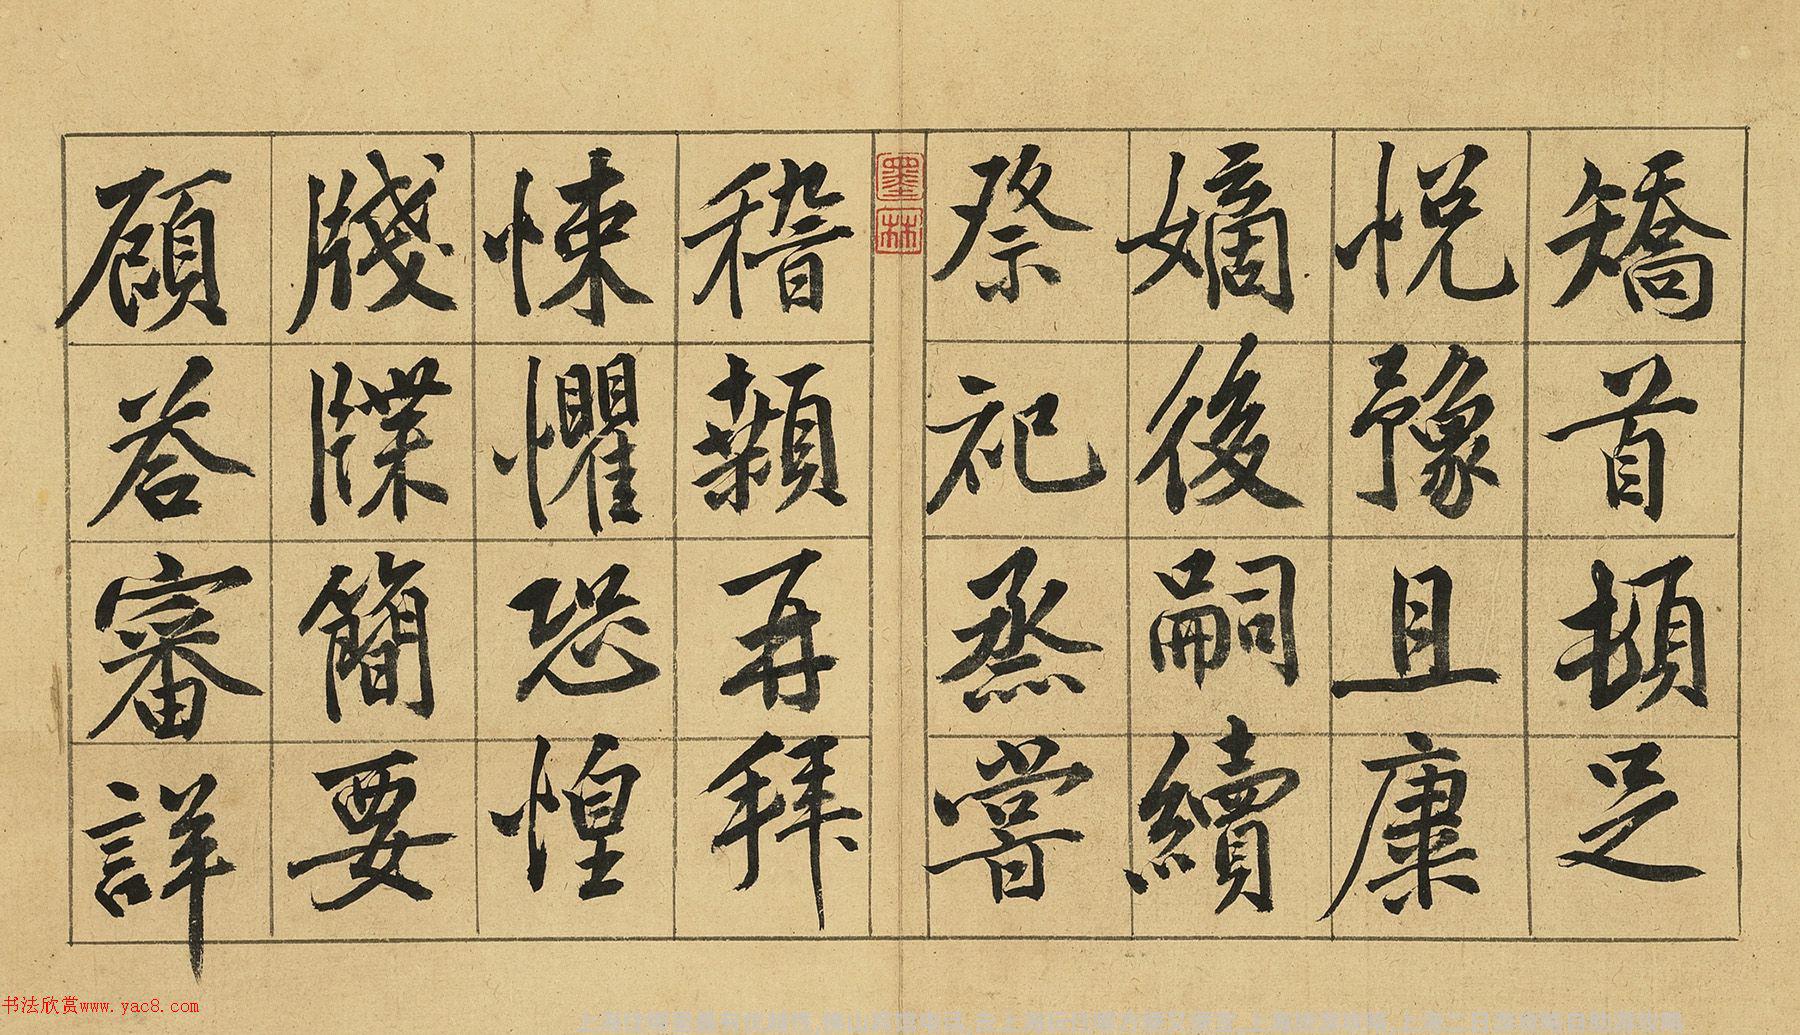 矯首頓足
悅豫且康
嫡後嗣續
祭祀烝嘗
墨林
稽顙再拜
悚懼恐惶
牋牒簡要
顧答審詳
书法欣赏www.yac8.com